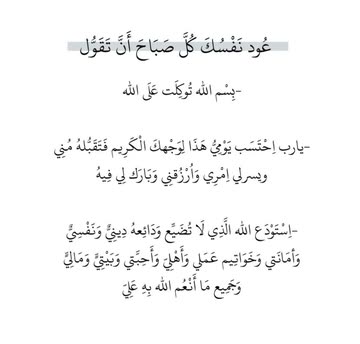 عُود نَفْسُكَ كُلَّ صَبَاحَ أَنَّ تَقَوُّل
-بِسْم الله تُوكِلَت عَلَى الله
-يارب اِحْتَسَب يَوْمِيُّ هَذَا لِوَجْهكَ الْكَرِيم فَتَقَبُّلهُ مُنِي
ويسرلي اِمْرِي وَاُرْزُقنِي وَبَارَك لِي فِيهُ
-اِسْتَوْدَع الله الَّذِي لَا تُضَيِّع وَدَائِعهُ دِينِيٌّ وَنَفْسِيٌّ
وَأمَانَتي وَخَوَاتِيم عَمَلي وَأَهْلِيَ وَأَحِبَّتي وَبَيْتِيَّ وَمَالِيٌّ
وَجَمِيع مَا أَنْعُم الله بِهِ عَلِيَ